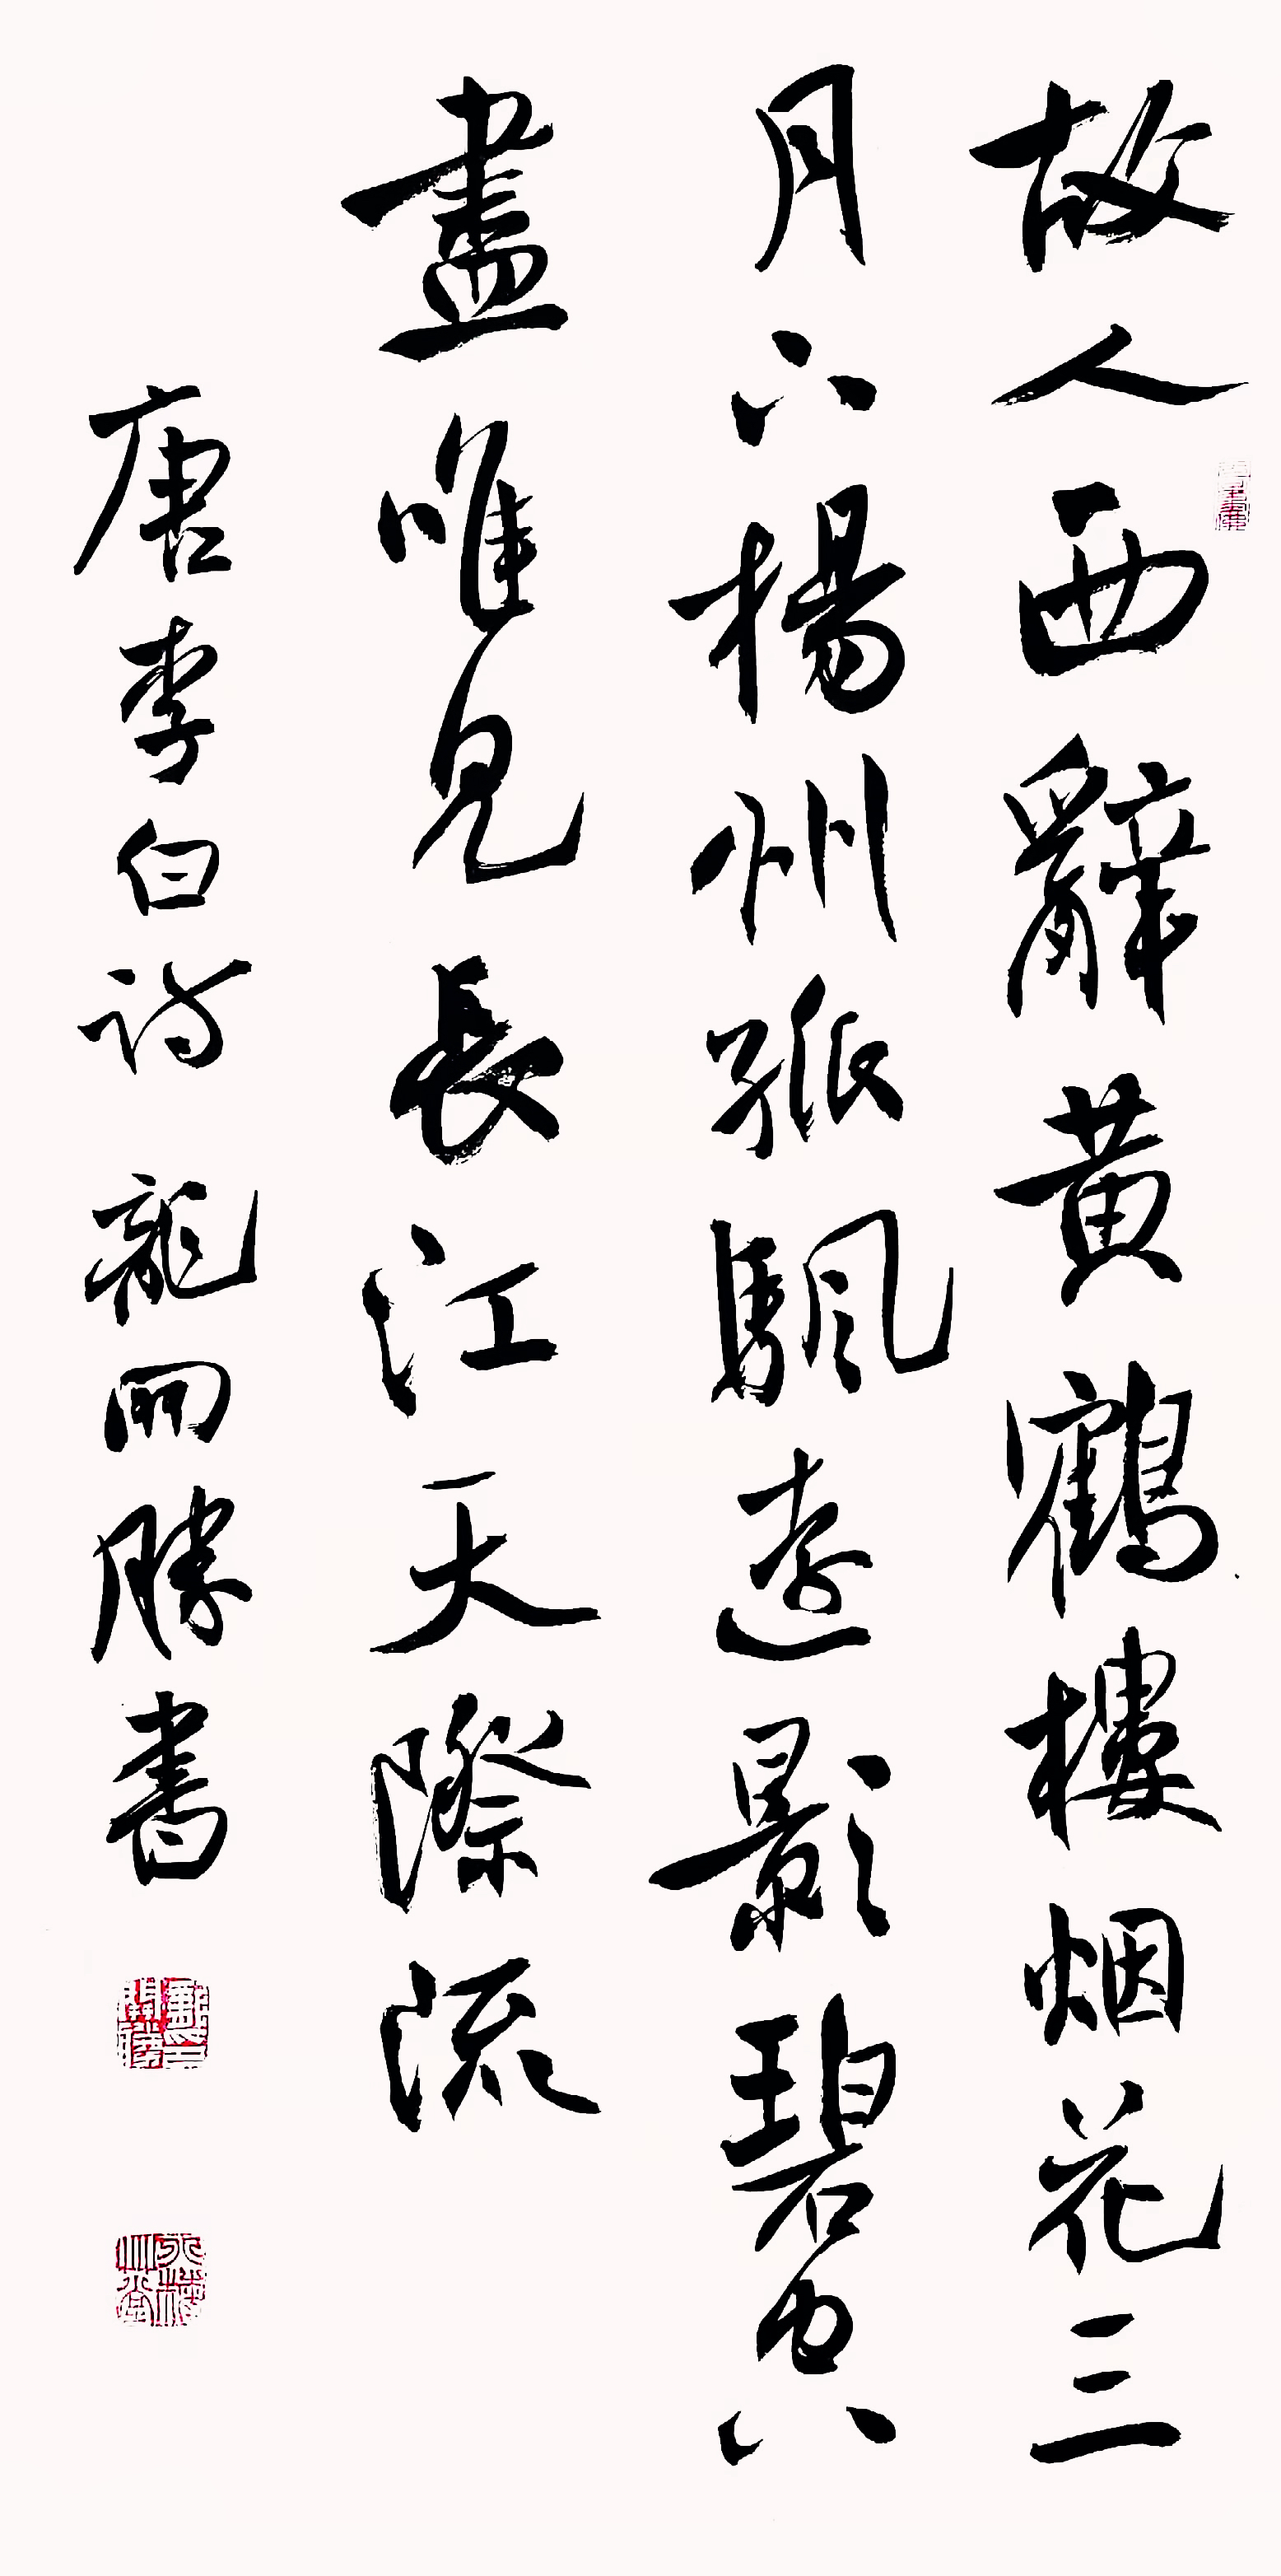 故人西辭黄鶴樓烟花三
月下楊州孤颿遠影碧空
盡唯見長江天際流
唐李白詩 龍開勝書